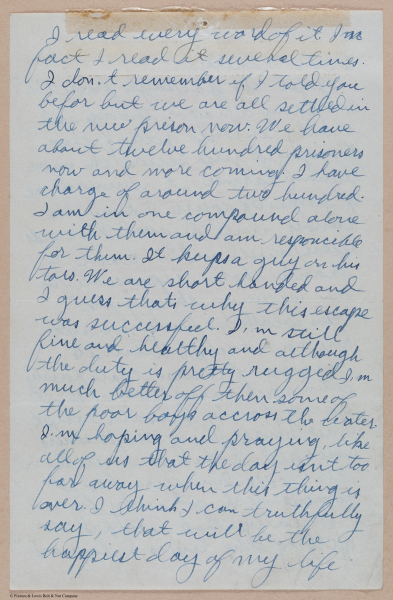 I read every word of it In
fact I read it several times.
I don.t remember if I told you
befor but we are all settled in
the new prison now. We have
about twelve hundred prisoners
now and more coming. I have
charge of around two hundred.
I am in one compound alone
with them and am responcible
for them. It keeps a guy on his
toes. We are short handed and
I guess thats why this escape
was successful. I,m still
fine and healthy and although
the duty is pretty rugged I,m
much better off then some of
the poor boys accross the water.
I.m hoping and praying, like
all of us that the day isn't too
far away when this thing is
over. I think I can truthfully
say, that will be the
happiest day of my life.
© Pearson & Lewis Bolt & Nut Company